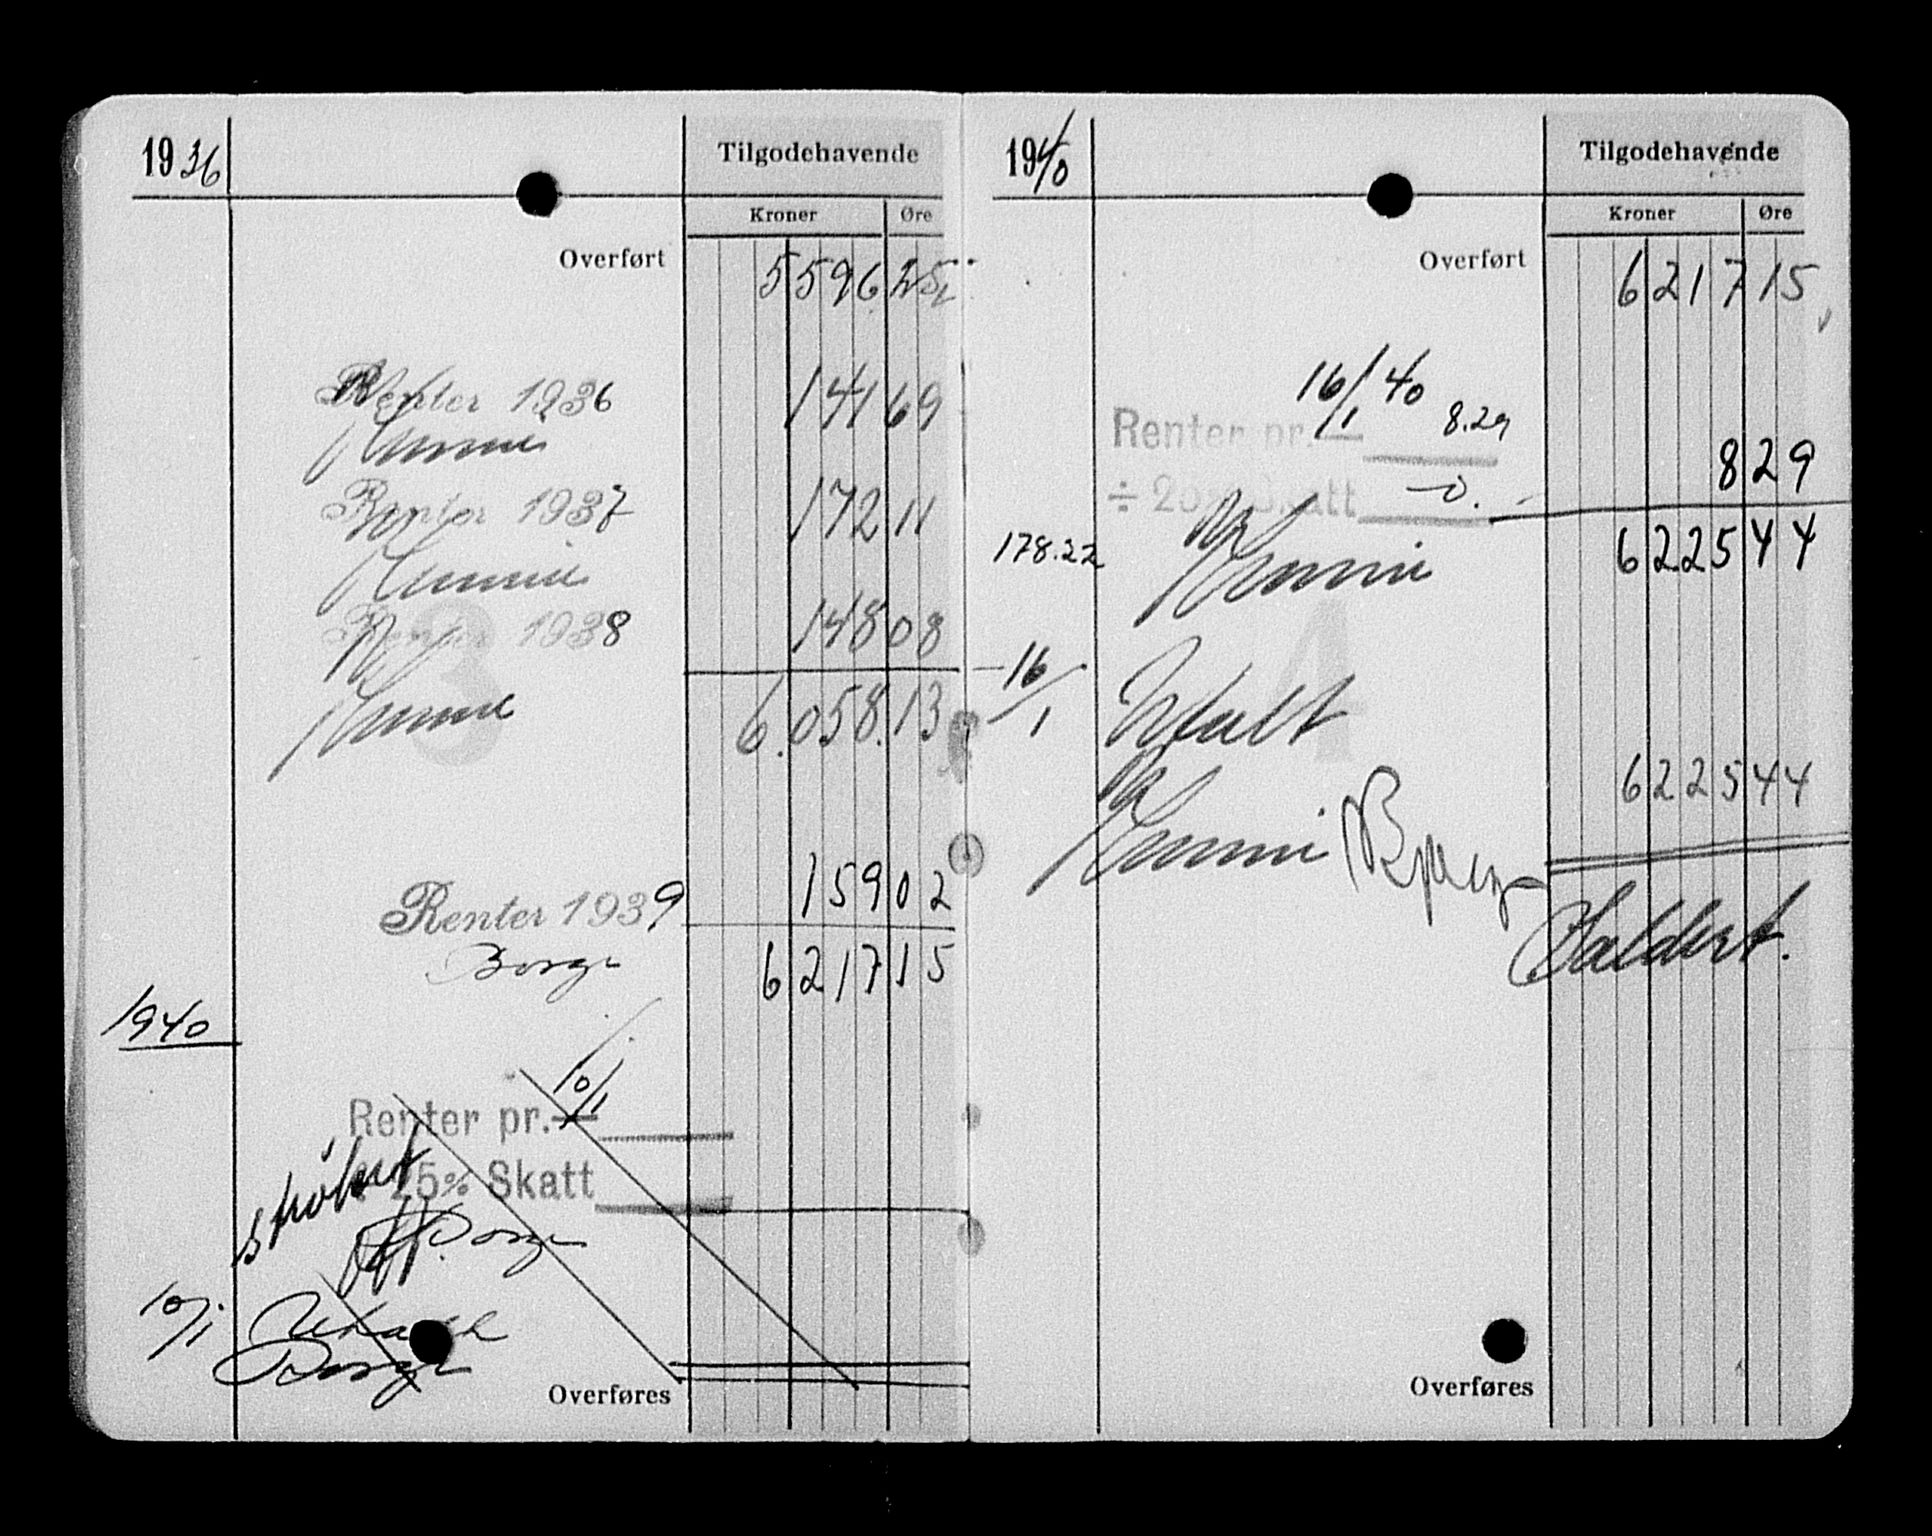 1936
Tilgodehavende
Kroner Øre
Overført 5596 25
Renter 1936 141 69
Renter 1937 172 11
Renter 1938 148 08
3
6.058.13
Renter 1939 159 02
Borge
6217 15
1940
Renter pr. 10/1
÷ 25% Skatt
Borge
10/1
Borge
Overføres
1940
Tilgodehavende
Kroner Øre
Overført 6217 15
16/1 40
Renter pr. 8.29
8 29
÷ 20% Skatt
178.22
6225 44
4
16/1
6225 44
Saldert.
Overføres